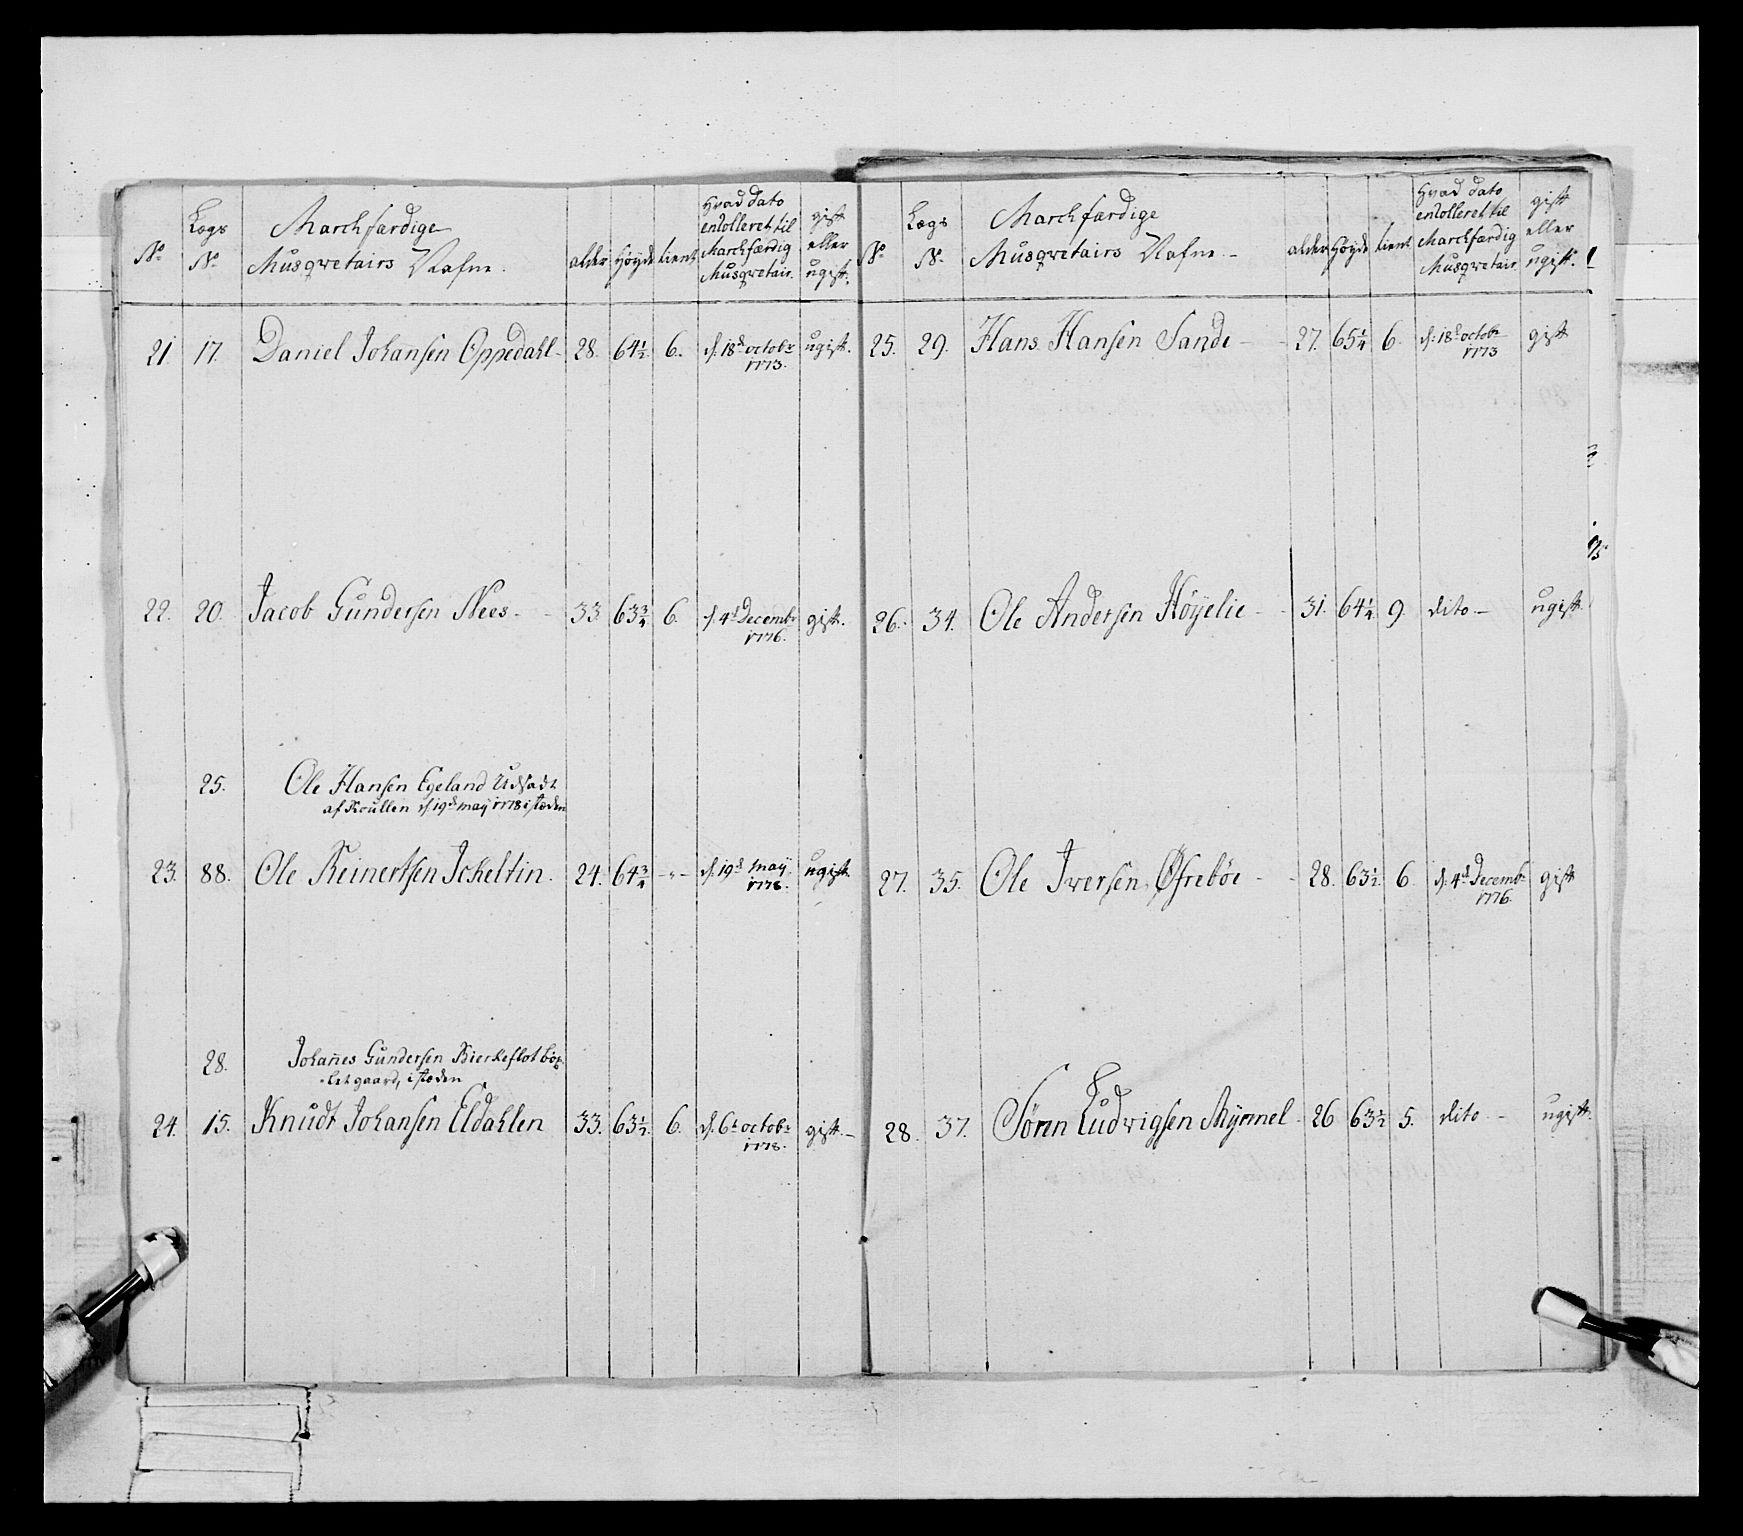 No Legs No Marchfærdige Musqvetairs Nafne. alder Høyde tient Hvad dato enrolleret til Marchfærdig Musqvetair. gift eller ugift.
21 17. Daniel Johansen Oppedahl- 28. 64½ 6. d. 18d octobr 1773. ugift.
22. 20. Jacob Gundersen Nees- 33 63¾ 6. d. 4d Decembr 1776. gift.
25. Ole Hansen Egeland Udsadt
af Roullen d. 19d may 1778 i stæden
23. 88. Ole Reinertsen Ickeltin. 24. 64¾ -"- d. 19d may 1778. ugift.
28. Johanes Gundersen Bierkeflot bor-
-let gaard, i stæden
24. 15. Knudt Johansen Eldahlen 33. 63½ 6. d. 6t octobr 1778. gift.-
No Legs No Marchfærdige Musqvetairs Nafne.- alder Høyde tient Hvad dato enrolleret til Marchfærdig Musqvetair gift eller ugift.
25. 29. Hans Hansen Sande - 27. 65¼ 6. d. 18d octobr 1773 gift
26. 34. Ole Andersen Høyelie - 31. 64¼ 9 dito- ugift.
27. 35. Ole Iversen Øfrebøe - 28. 63½ 6. d. 4d Decembr 1776. gift
28. 37. Søren Ludvigsen Myrmel. 26 63½ 5. dito - ugift.